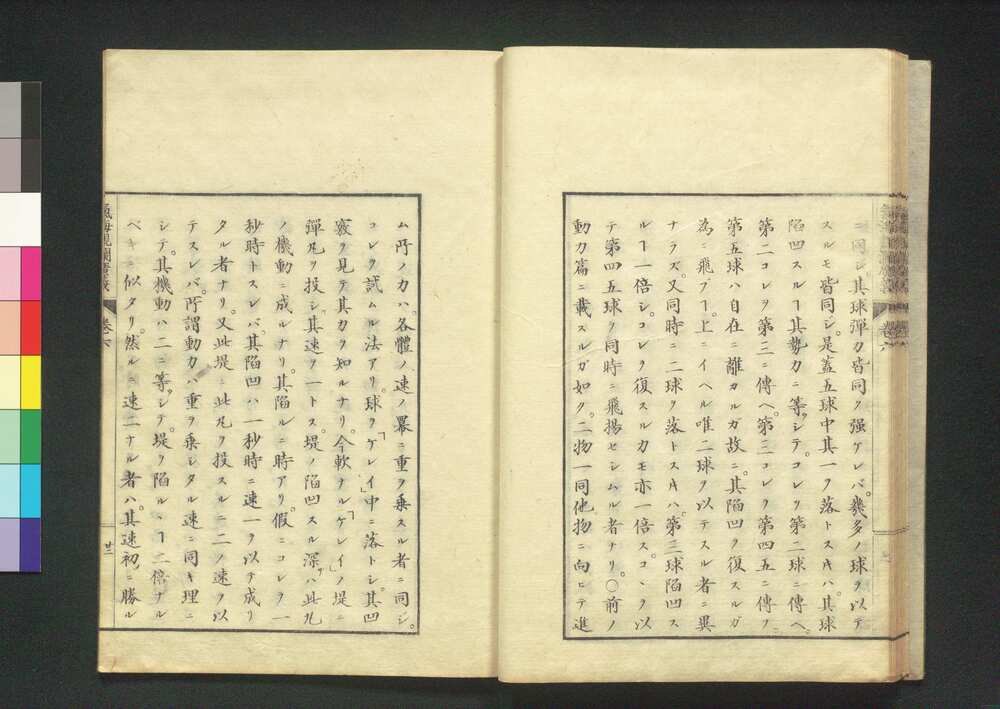 ニ同シ。其球彈力皆同ク强ケレバ。幾多ノ球ヲ以テ
スルモ皆同ジ。是蓋五球中其一ヲ落トス𪜈ハ。其球
陷凹スルヿ其勢力ニ等シテ。コレヲ第二球ニ傳ヘ。
第二コレヲ第三ニ傳ヘ。第三コレヲ第四五ニ傳フ。
第五球ハ自在ニ離カルガ故ニ。其陷凹ヲ復スルガ
為ニ飛ブヿ上ニイヘル唯二球ヲ以テスル者ニ異
ナラズ。又同時ニ二球ヲ落トス𪜈ハ第三球陷凹ス
ルヿ一倍シ。コレヲ復スル力モ亦一倍ス。コヽヲ以
テ第四五球ヲ同時ニ飛揚セシムル者ナリ。○前ノ
動力篇ニ載スルガ如ク。二物一同他物ニ向ヒテ進
ム所ノ力ハ。各體ノ速ノ羃ニ重ヲ乗スル者ニ同シ。
コレヲ試ムル法アリ。球ヲ「ケレイ」中ニ落トシ。其凹
竅ヲ見テ其力ヲ知ルナリ。今軟ナル「ケレイ」ノ堤ニ
彈丸ヲ投シ。其速ヲ一トス。堤ノ陷凹スル深ハ。此丸
ノ機動ニ成ルナリ。其陷ルニ時アリ。假ニコレヲ一
秒時トスレバ。其陷凹ハ一秒時ニ速一ヲ以テ成リ
タル者ナリ。又此堤ニ此丸ヲ投スルニ二ノ速ヲ以
テスレバ。所謂動力ハ重ヲ乗シタル速ニ同キ理ニ
シテ。其機動ハ二ニ等シテ。堤ヲ陷ルヽヿ二倍ナル
ベキニ似タリ。然ルニ速二ナル者ハ。其速初ニ勝ル
氣海觀瀾廣義
卷六
廿二